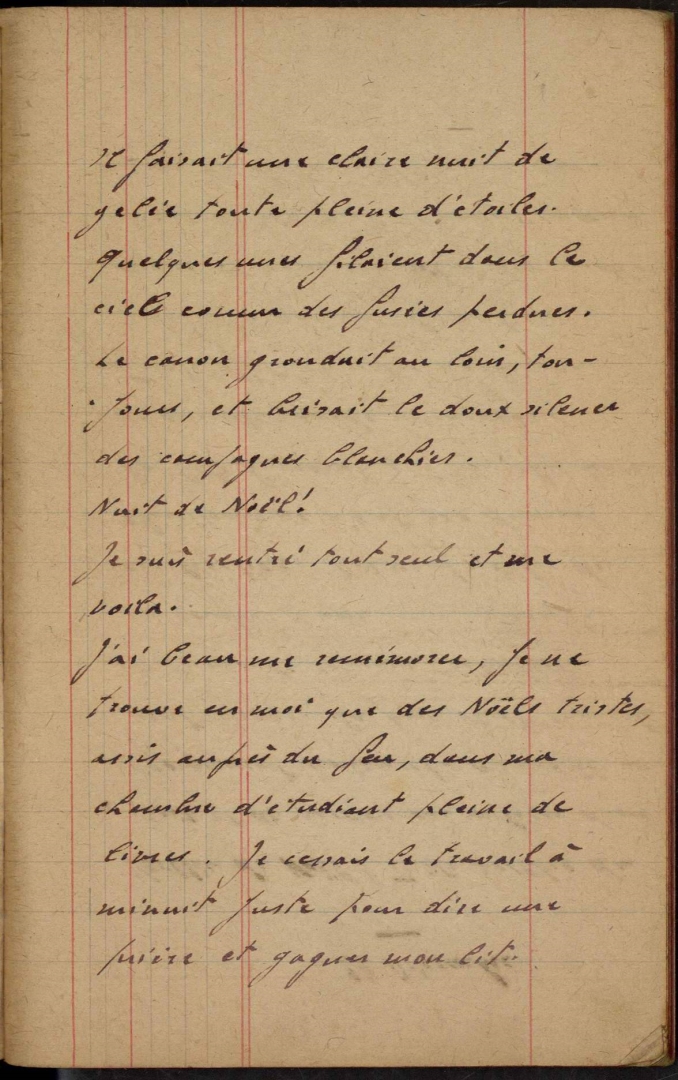 Il faisait une claire nuit de
gelée toute pleine d'étoiles.
Quelques unes filaient dans le
ciel comme des fusées perdues.
Le canon grondait au loin, tou-
jours, et brisait le doux silence
des campagnes blanchies.
Nuit de Noël!
Je suis rentré tout seul et me
voila.
J'ai beau me remémorer, je ne
trouve en moi que des Noëls tristes,
assis auprès du feu, dans ma
chambre d'étudiant pleine de
livres. Je cessais le travail à
minuit juste pour dire une
prière et gagner mon lit.